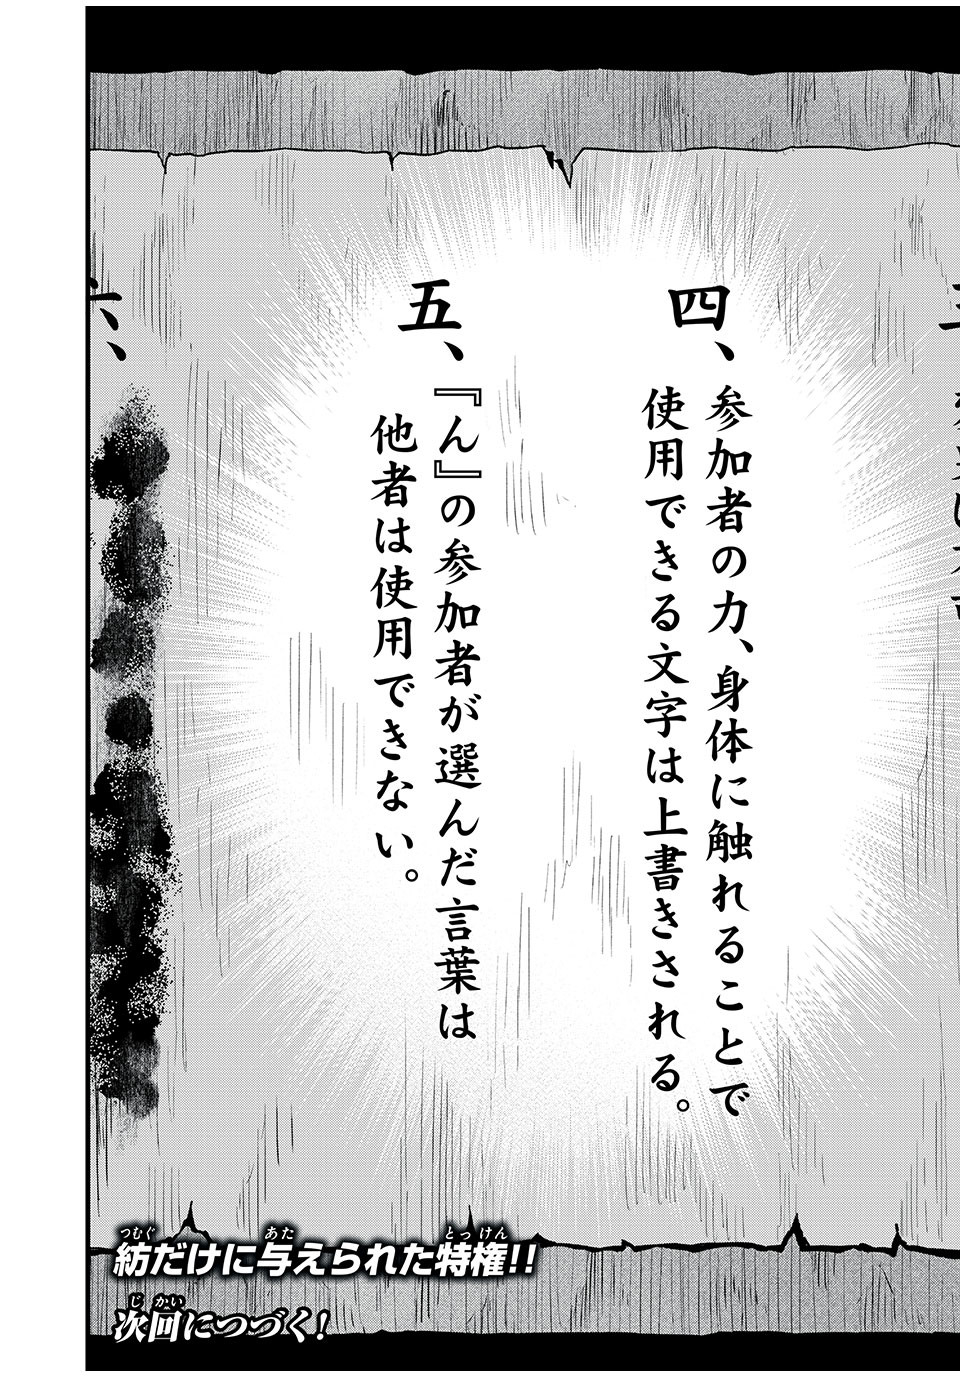 四、参加者の力、身体に触れることで
使用できる文字は上書きされる。
五、『ん』の参加者が選んだ言葉は
他者は使用できない。
六、
紡だけに与えられた特権!!
次回につづく!